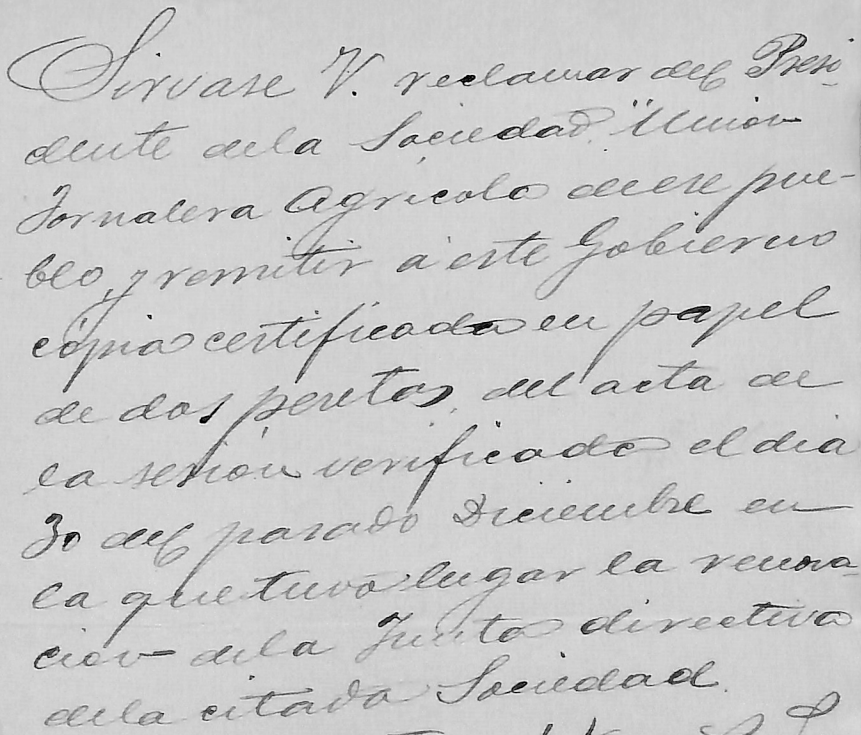 Sirvase V. reclamar del Presi-
dente dela Sociedad "Union
Jornalera Agricola de ese pue-
blo, y remitir á este Gobierno
cópia certificada en papel
de dos pesetas, del acta de
la sesión verificada el dia
30 del pasado Diciembre en
la que tuvo lugar la renova-
cion dela Junta directiva
dela citada Sociedad.